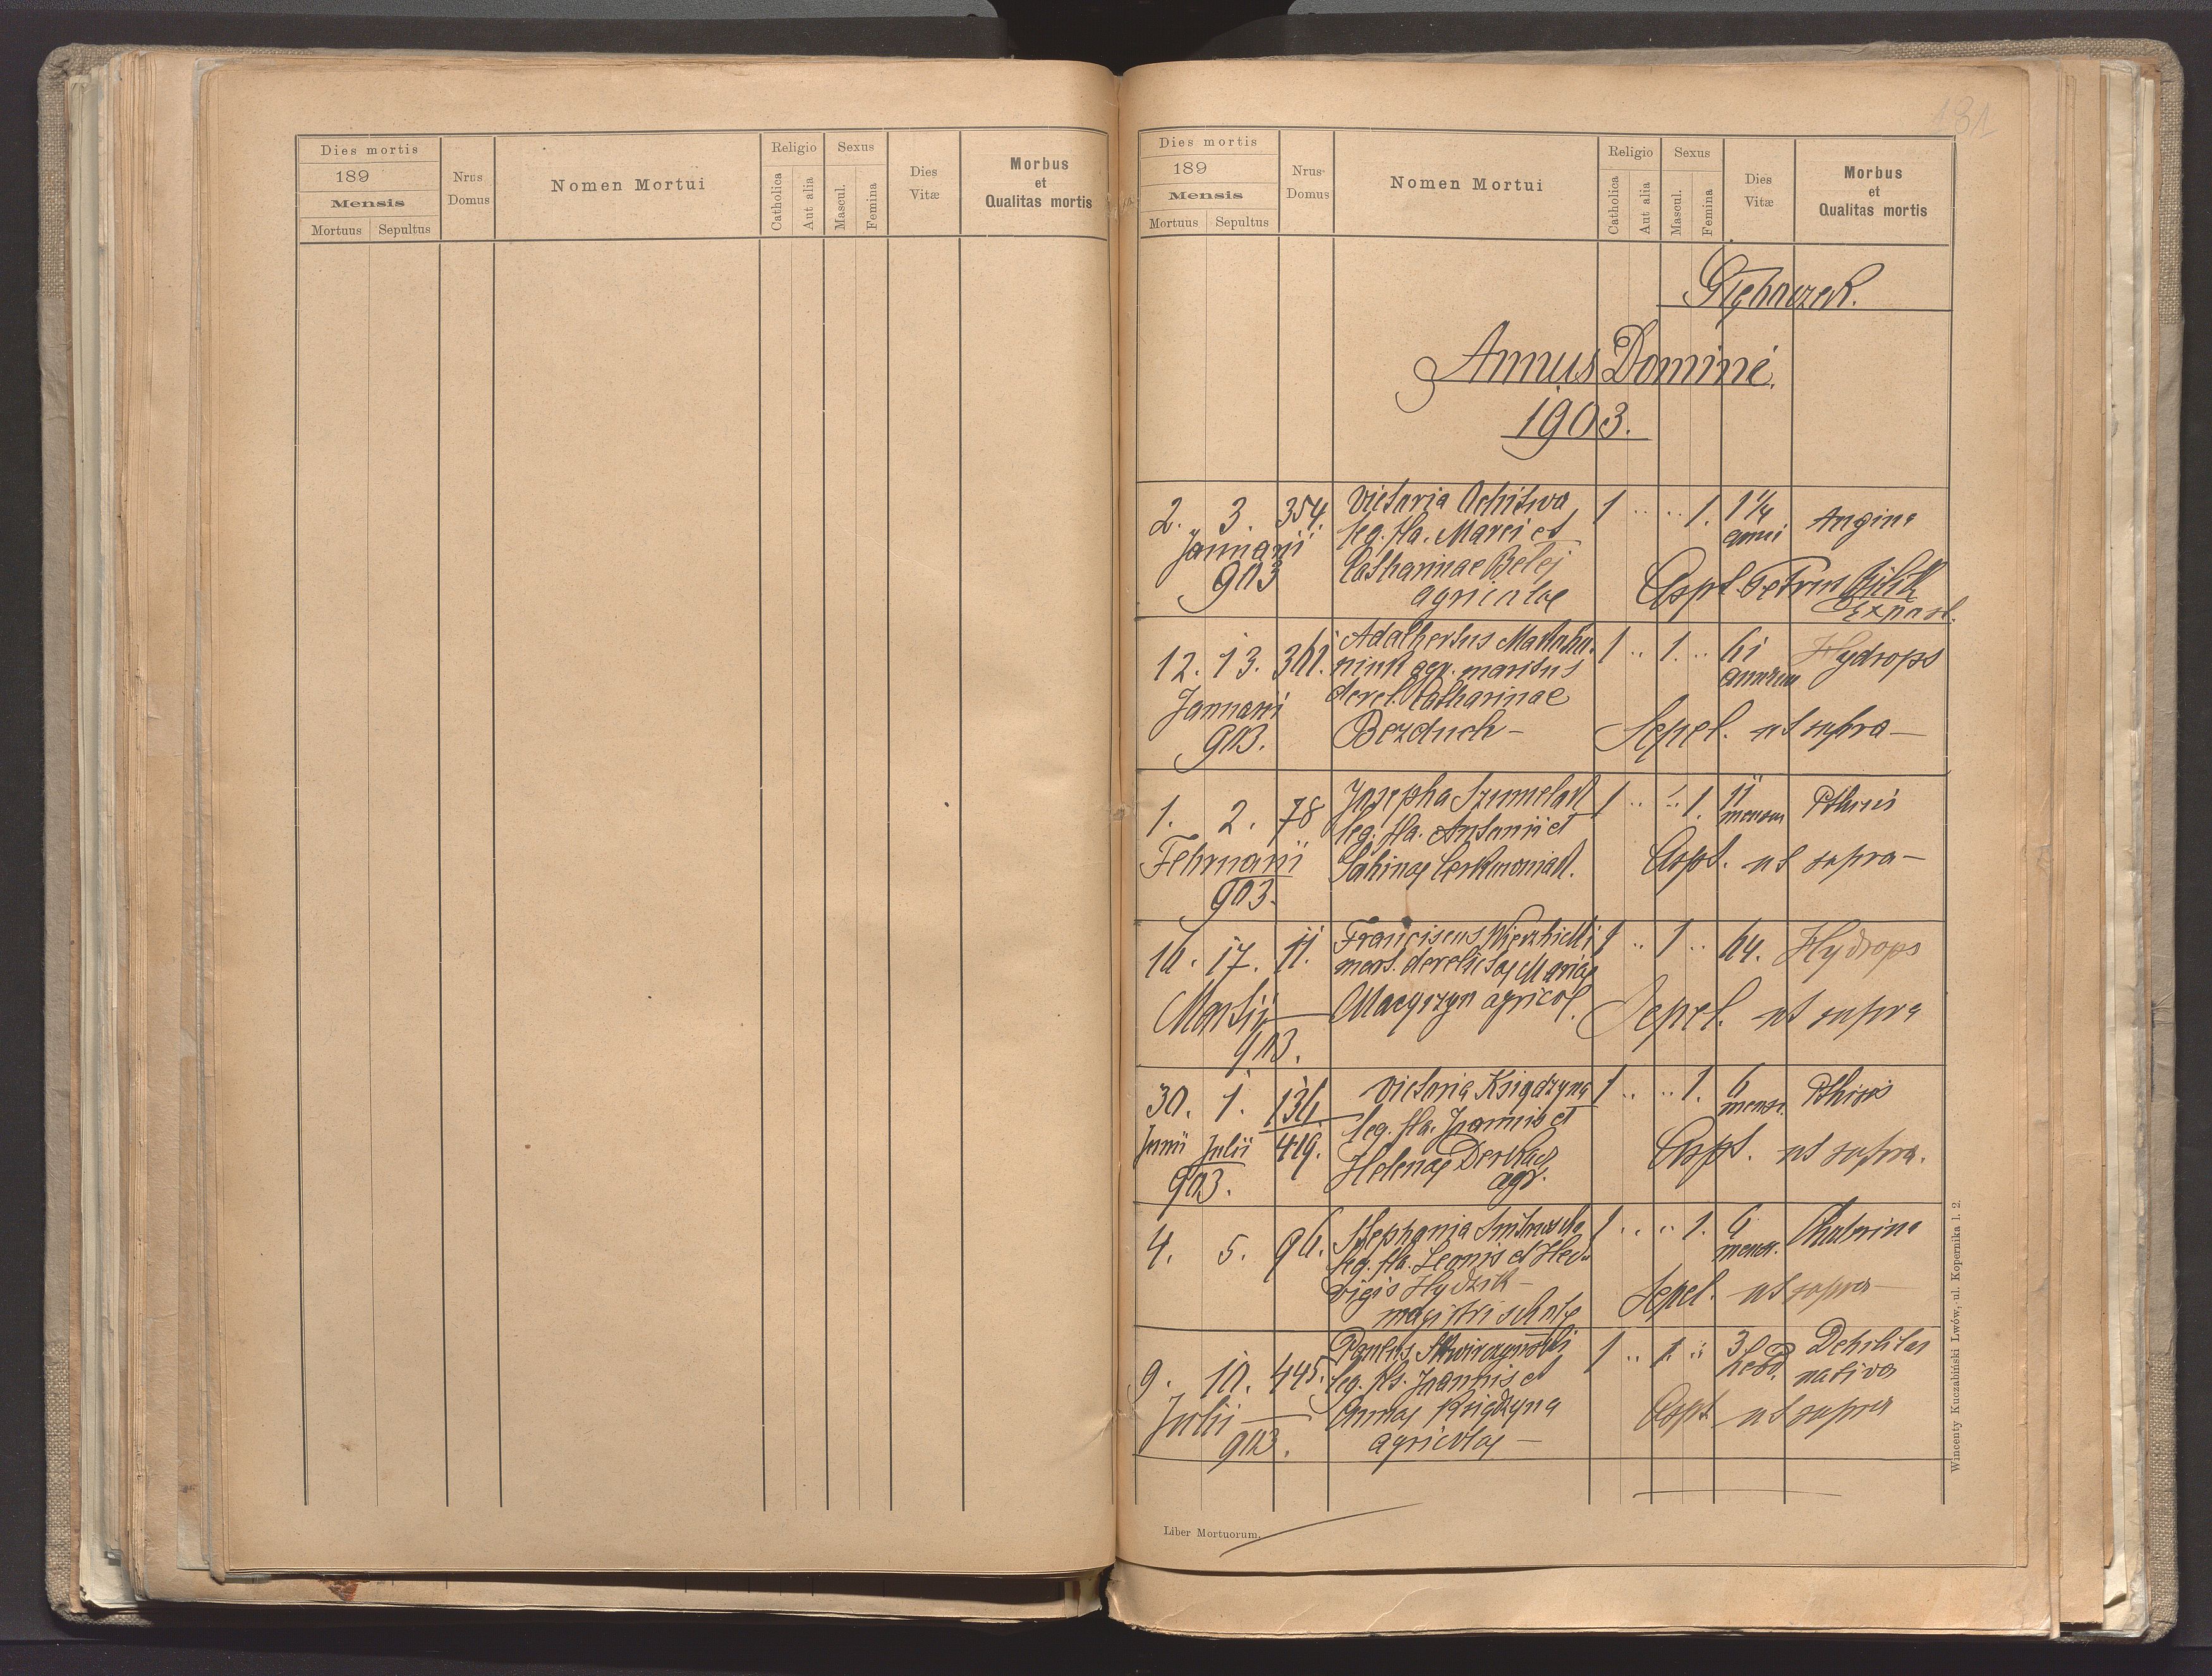 Dies mortis
189
Mensis
Mortuus Sepultus
Nrus Domus
Nomen Mortui
Religio
Catholica
Aut alia
Sexus
Mascul.
Femina
Dies Vitæ
Morbus
et
Qualitas mortis
181
Dies mortis
189
Mensis
Mortuus Sepultus
Nrus Domus
Nomen Mortui
Religio
Catholica
Aut alia
Sexus
Mascul.
Femina
Dies Vitæ
Morbus
et
Qualitas mortis
Annus Domini
1903.
2. 3. 354. Victoria 1 .. .. 1. 1 1/4 anni Angina
Januarii leg. fla. Marci et
903 Catharinae Belej
agricolae
Petrus
Expost.
12. 13. 361. Adalbertus 1 .. 1. .. 61 annorum Hydrops
agr. maritus
Januarii derel. Catharinae
903. Bezduch – Sepel. ut supra –
1. 2. 78 Josepha 1 .. .. 1. 11 mensum Pthisis
leg. fla. Antonii et
Februarii Sabinae ut supra –
903.
16. 17. 11. Franciscus 1 .. 1 .. 64. Hydrops
mart. derelictae Mariae
Martii – agricol. Sepel. ut supra
903.
30. 1. 136 Victoria Księdzyna 1 .. .. 1. 6 mens. Pthisis
Junii Julii 419. leg. fla. Joannis et
903. Helenae Derkacz ut supra.
agr.
4. 5. 96. Stephania 1 .. .. 1. 6 mens.
leg. fla. Leonis et Hed-
vigis Hydzik –
magistri scholae Sepel. ut supra –
9. 10. 445. Paulus 1 .. 1. .. 3 hebd. Debilitas nativa
leg. fls. Joannis et
Julii – Annae Księdzyna ut supra
903. agricolae –
Liber Mortuorum.
Wincenty Kuczabiński Lwów, ul. Kopernika l. 2.